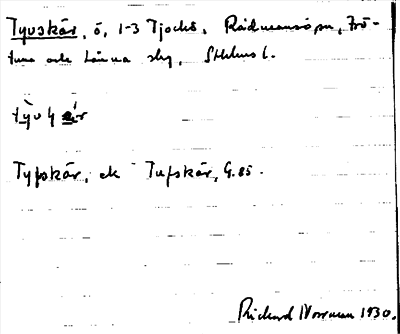 Tyvskär, ö, 1-3 Tjockö, Rådmansö sn, Frö-
tuna och Länna skg, Sthlms l.
Typskär, ek Tufskär, G.85.
Richard Norrman 1930.